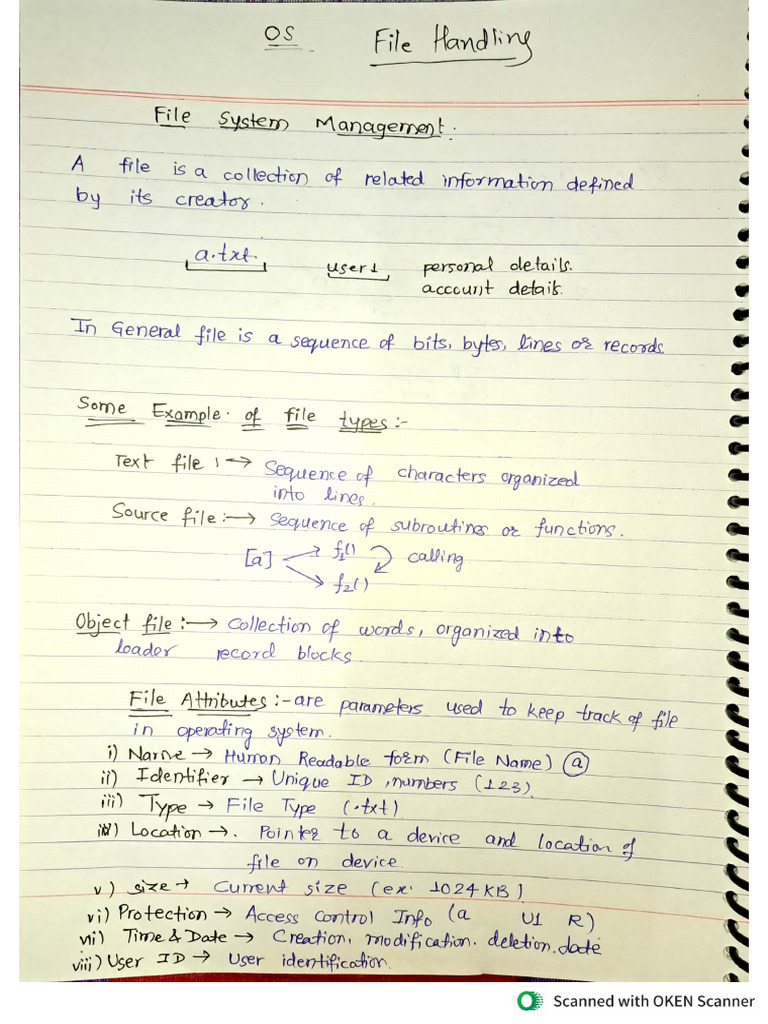 OS File Handling
File System Management.
A file is a collection of related information defined
by its creator.
a.txt. user1 personal details.
account details.
In General file is a sequence of bits, bytes, lines or records.
Some Example of file types:-
Text file :→ Sequence of characters organized
into lines.
Source file :→ Sequence of subroutines or functions.
[a] f1() calling
f2()
Object file :→ Collection of words, organized into
loader record blocks.
File Attributes :- are parameters used to keep track of file
in operating system.
i) Name → Human Readable form (File Name) (a)
ii) Identifier → Unique ID, numbers (123).
iii) Type → File Type (.txt)
iv) Location →. Pointer to a device and location of
file on device.
v) size → Current size (ex. 1024 KB)
vi) Protection → Access Control Info (a U1 R)
vii) Time & Date → Creation, modification. deletion.date
viii) User ID → User identification.
Scanned with OKEN Scanner